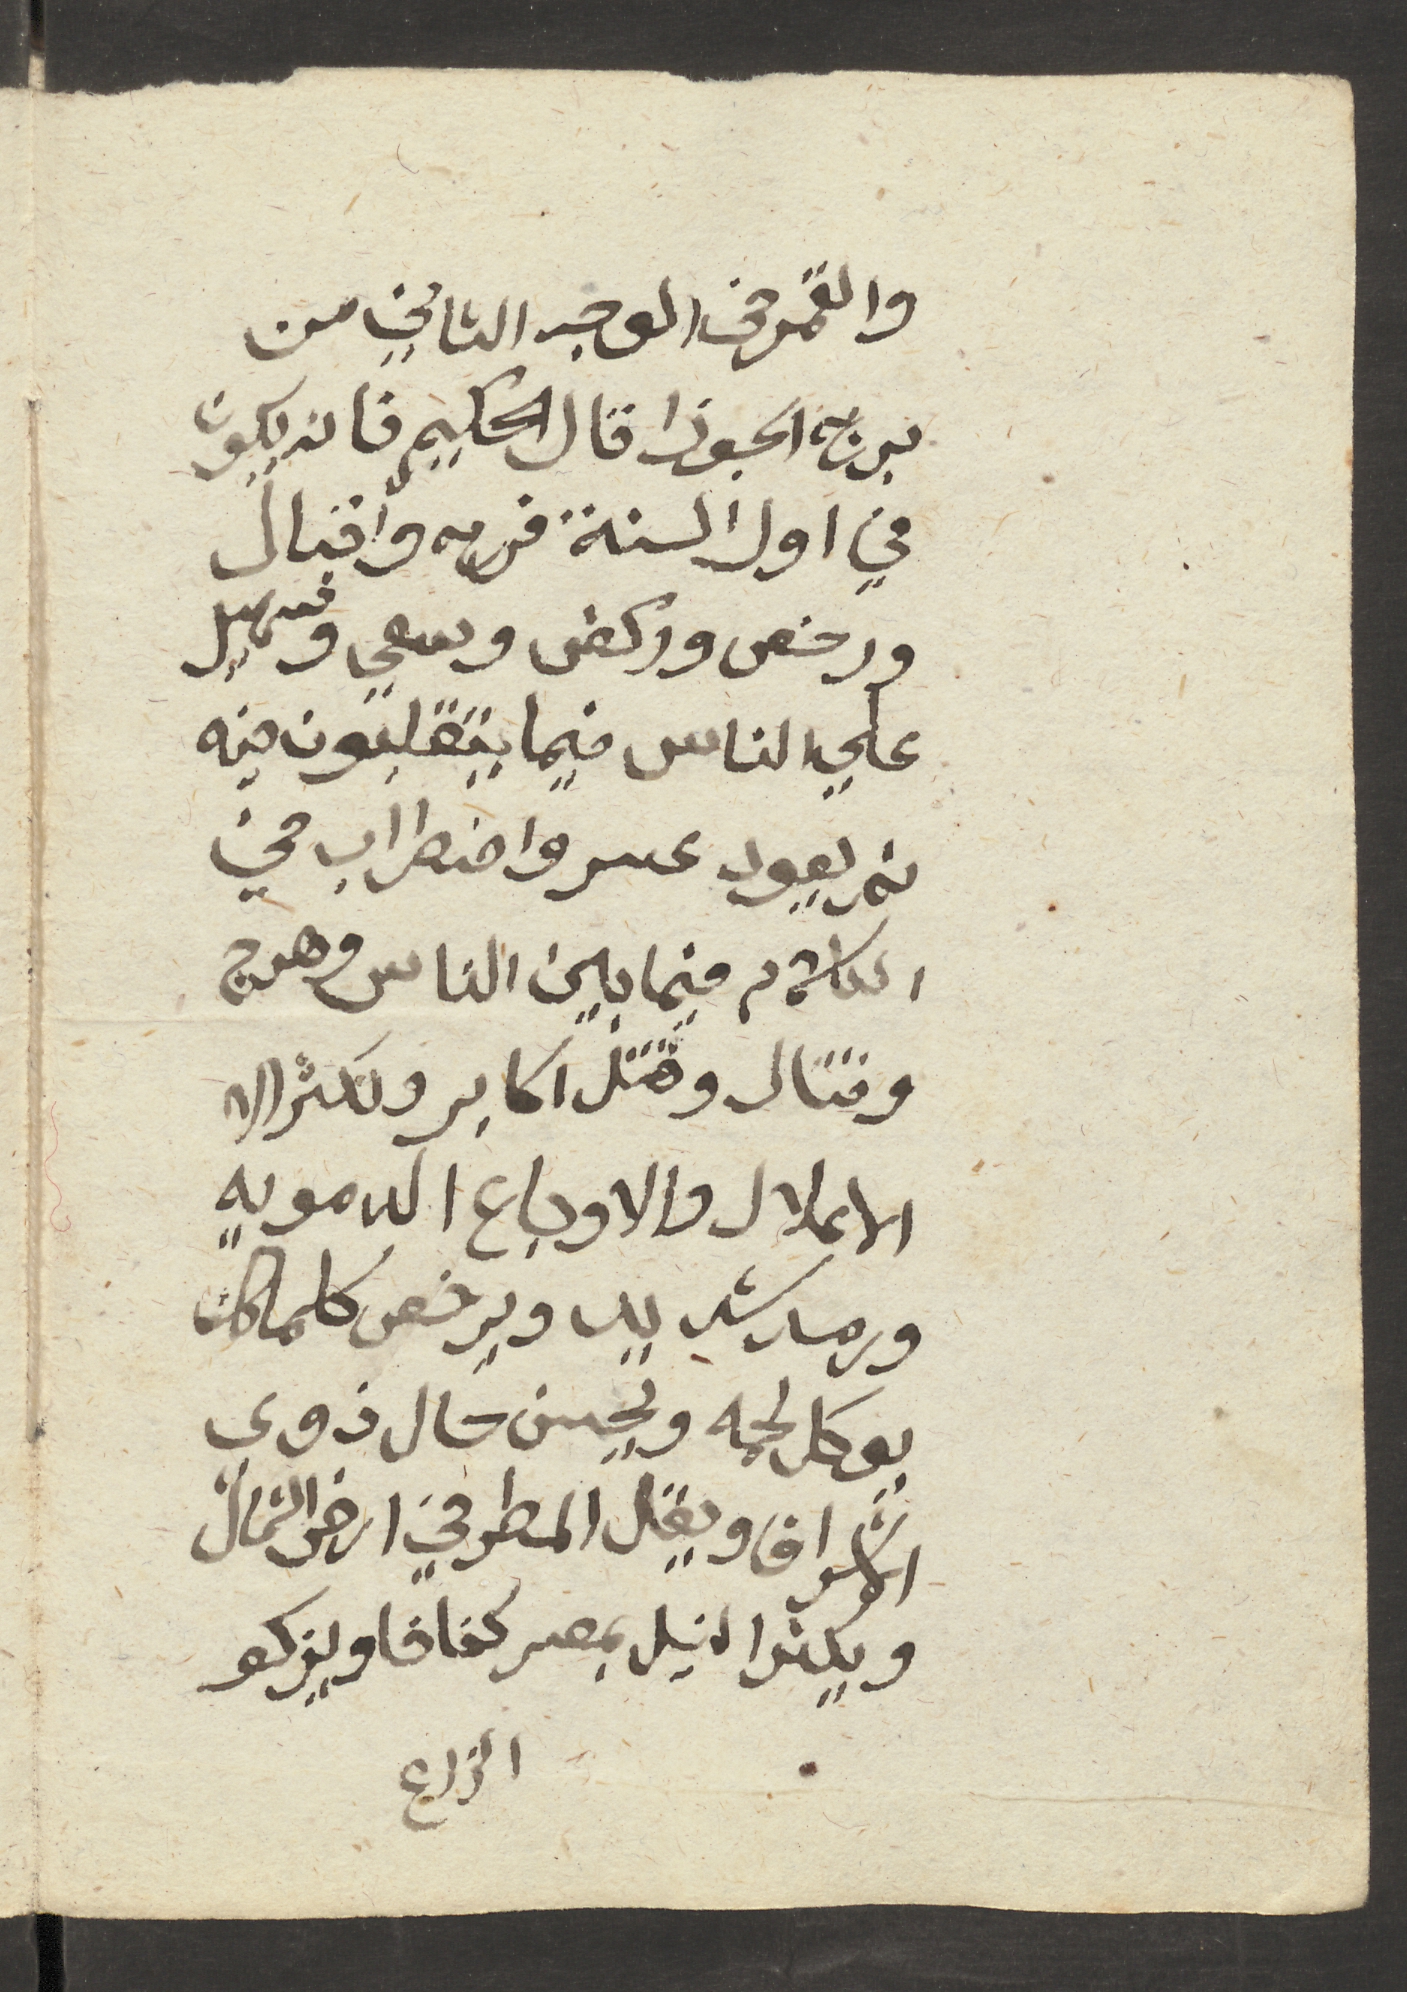 والقمر في الوجه الثاني من
برج الجوزا قال الحكيم فانه يكون
في اول السنة فرح واقبال
ورخص وركض وسعي وتسهيل
علي الناس فيما يتقلبون فيه
ثم يعود عسر واضطراب في
الكلام فيما بين الناس وهرج
وقتال وقتل اكابر وتكثر الا
الاعلال والاوجاع الدمويه
ورمد شديد ويرخص كلما كان
يوكل لحمه ويحسن حال ذوي
الاشراف ويقل المطر في ارض الشمال
ويكثر النيل بمصر كفافا ويزكو
الزرع